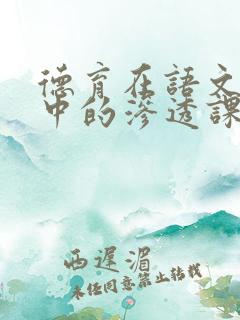 德育在語文
中的滲透課
西遲湄
未经同意禁止转载